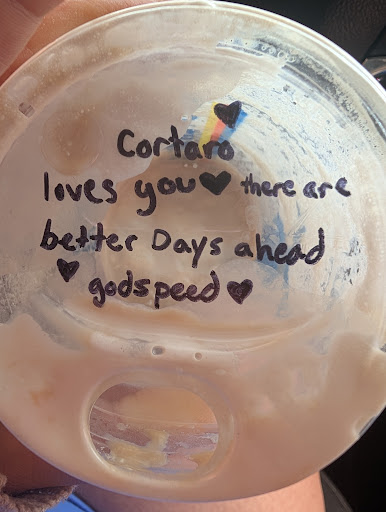 Cortaro
loves you♥ there are
better Days ahead
♥ godspeed ♥